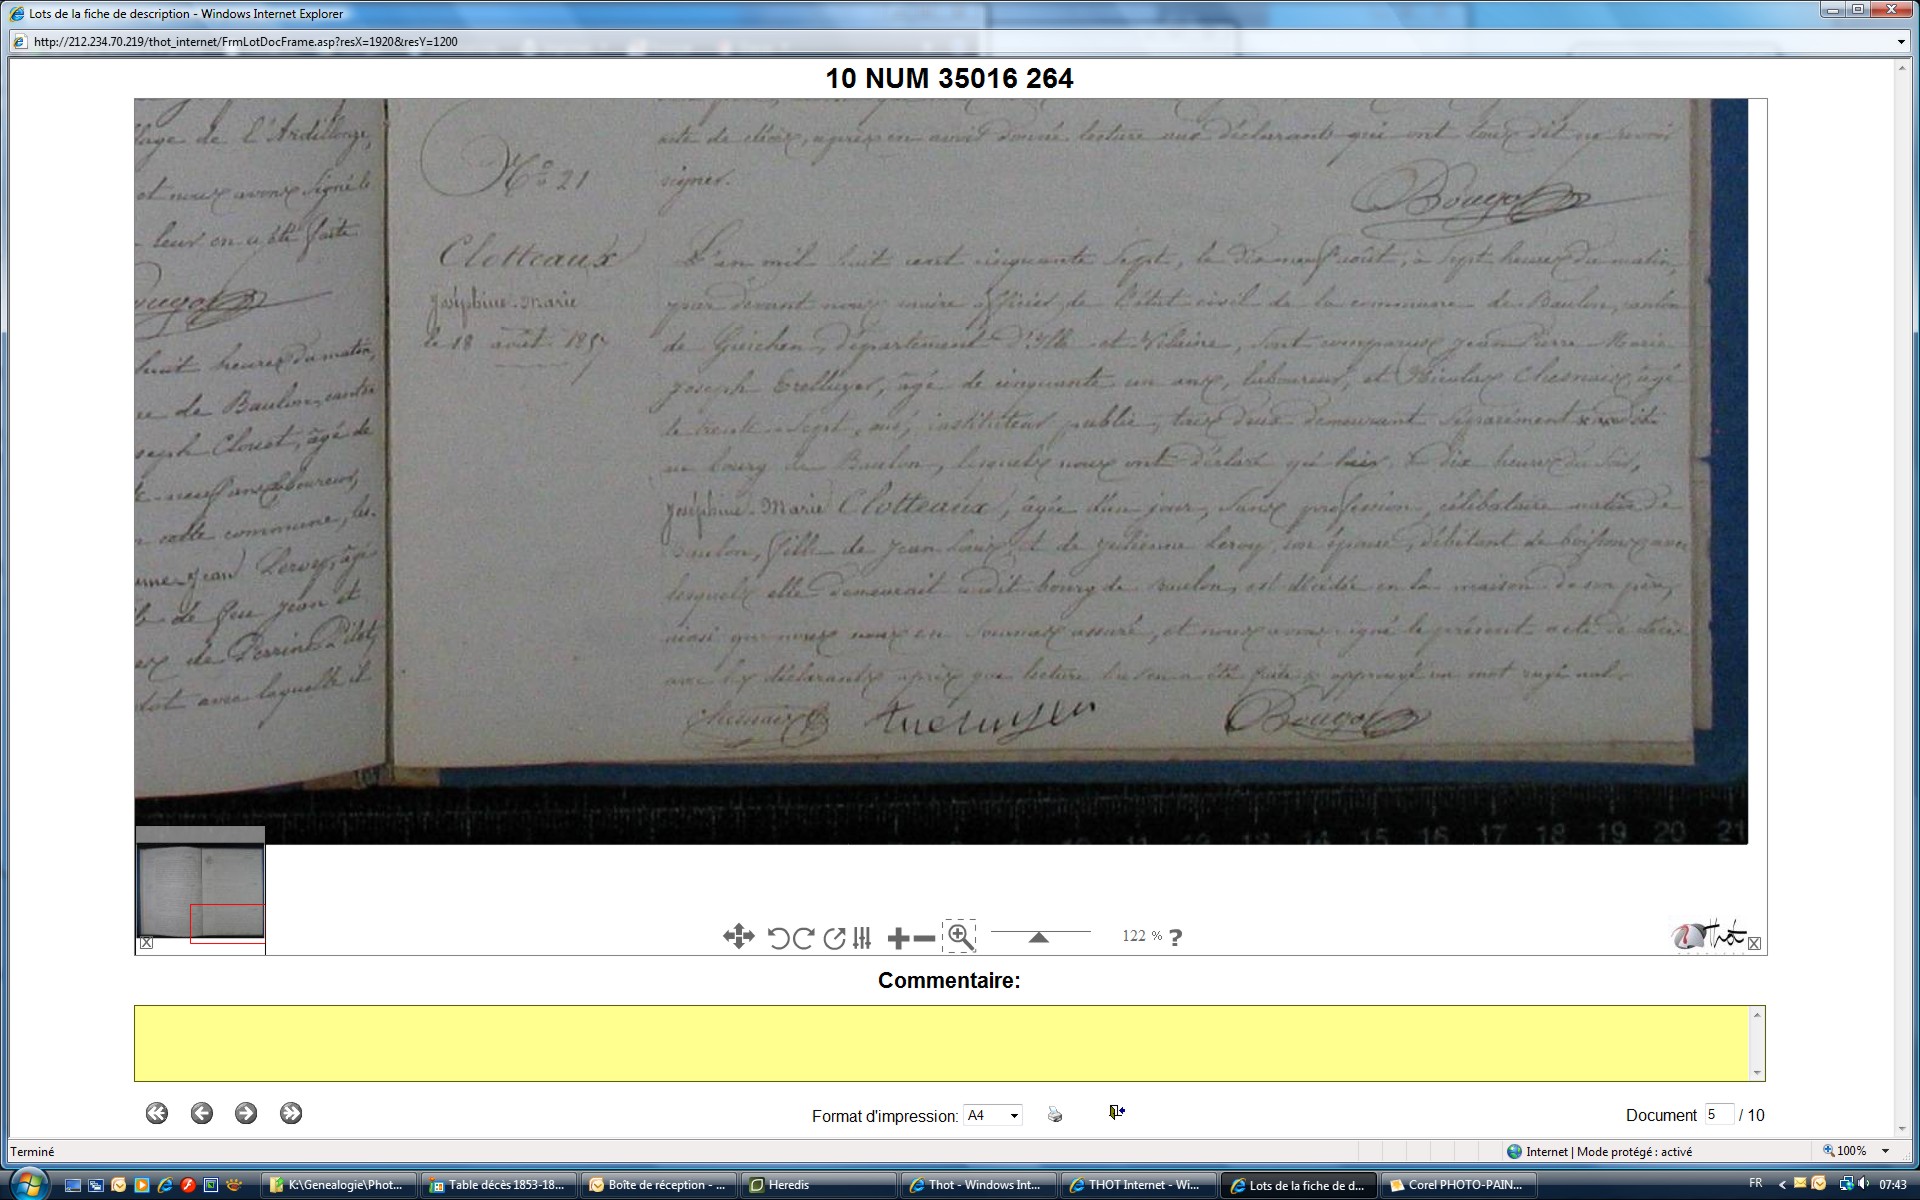 Lots de la fiche de description - Windows Internet Explorer
http://212.234.70.219/thot_internet/FrmLotDocFrame.asp?resX=1920&resY=1200
10 NUM 35016 264
lage de l'Ardillonge,
et nous avons signé le
leur en a été faite
Bougot
huit heures du matin,
ue de Baulon, canton
seph Clouet, âgé de
neuf ans, laboureur,
n cette commune, les
Jean Leroy, âgé
de feu Jean et
de Perrine Pilet
avec laquelle il
acte de décès, après en avoir donné lecture aux déclarants qui ont tous dit ne savoir
signer.
Bougot
N° 21
Clotteaux
Joséphine-Marie
le 18 août 1857
L'an mil huit cent cinquante sept, le dix neuf août, à sept heures du matin,
par devant nous maire officier de l'état civil de la commune de Baulon, canton
de Guichen, département d'Ille et Vilaine, sont comparus Jean Pierre Marie
Joseph Trelluyer, âgé de cinquante un ans, laboureur, et Nicolas Chesnais âgé
de trente-sept ans, instituteur public, tous deux demeurant séparément
au bourg de Baulon, lesquels nous ont déclaré que hier, à dix heures du soir,
Joséphine-Marie Clotteaux, âgée d'un jour, sans profession, célibataire native de
Baulon, fille de Jean Louis et de Julienne Leroy, son épouse, débitant de boissons avec
lesquels elle demeurait audit bourg de Baulon, est décédée en la maison de son père,
ainsi que nous nous en sommes assuré, et nous avons signé le présent acte de décès
avec les déclarants après que lecture leur en a été faite, approuvé un mot rayé nul.
Chesnais Bougot
10 11 12 13 14 15 16 17 18 19 20 21
122 % ?
Thot
Commentaire:
Format d'impression: A4
Document 5 / 10
Terminé
Internet | Mode protégé : activé
100%
K:\Genealogie\Phot...
Table décès 1853-18...
Boîte de réception - ...
Heredis
Thot - Windows Int...
THOT Internet - Wi...
Lots de la fiche de d...
Corel PHOTO-PAIN...
FR
07:43